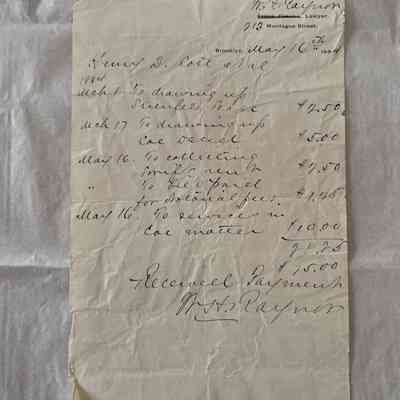 W. H. Raynor
Lawyer,
213 Montague Street.
Brooklyn, May 16th 1884
Henry D. Lott et al
1884
Mch 1 To drawing up
Deed $2.50
Mch 17 To drawing up
Coe Deed $5.00
May 16. To collecting
rent $2.50
" To fees paid
for Notarial fees. $1.25
May 16. To services in
Coe matter $10.00
21.25
$15.00
Received Payment
W. H. Raynor